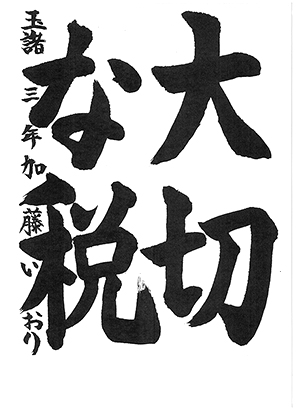 大切
な税
玉諸三年加藤いおり